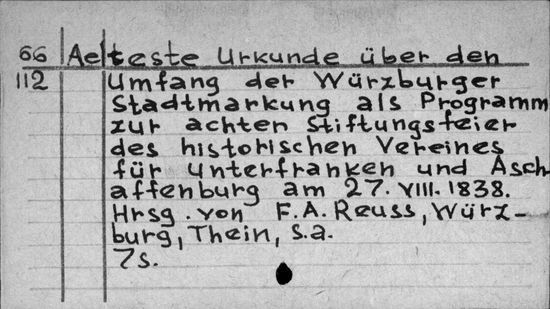 66 Aelteste Urkunde über den
112 Umfang der Würzburger
Stadtmarkung als Programm
zur achten Stiftungsfeier
des historischen Vereines
für Unterfranken und Asch
affenburg am 27. VIII. 1838.
Hrsg. von F. A. Reuss, Würz-
burg, Thein, s.a.
7s.